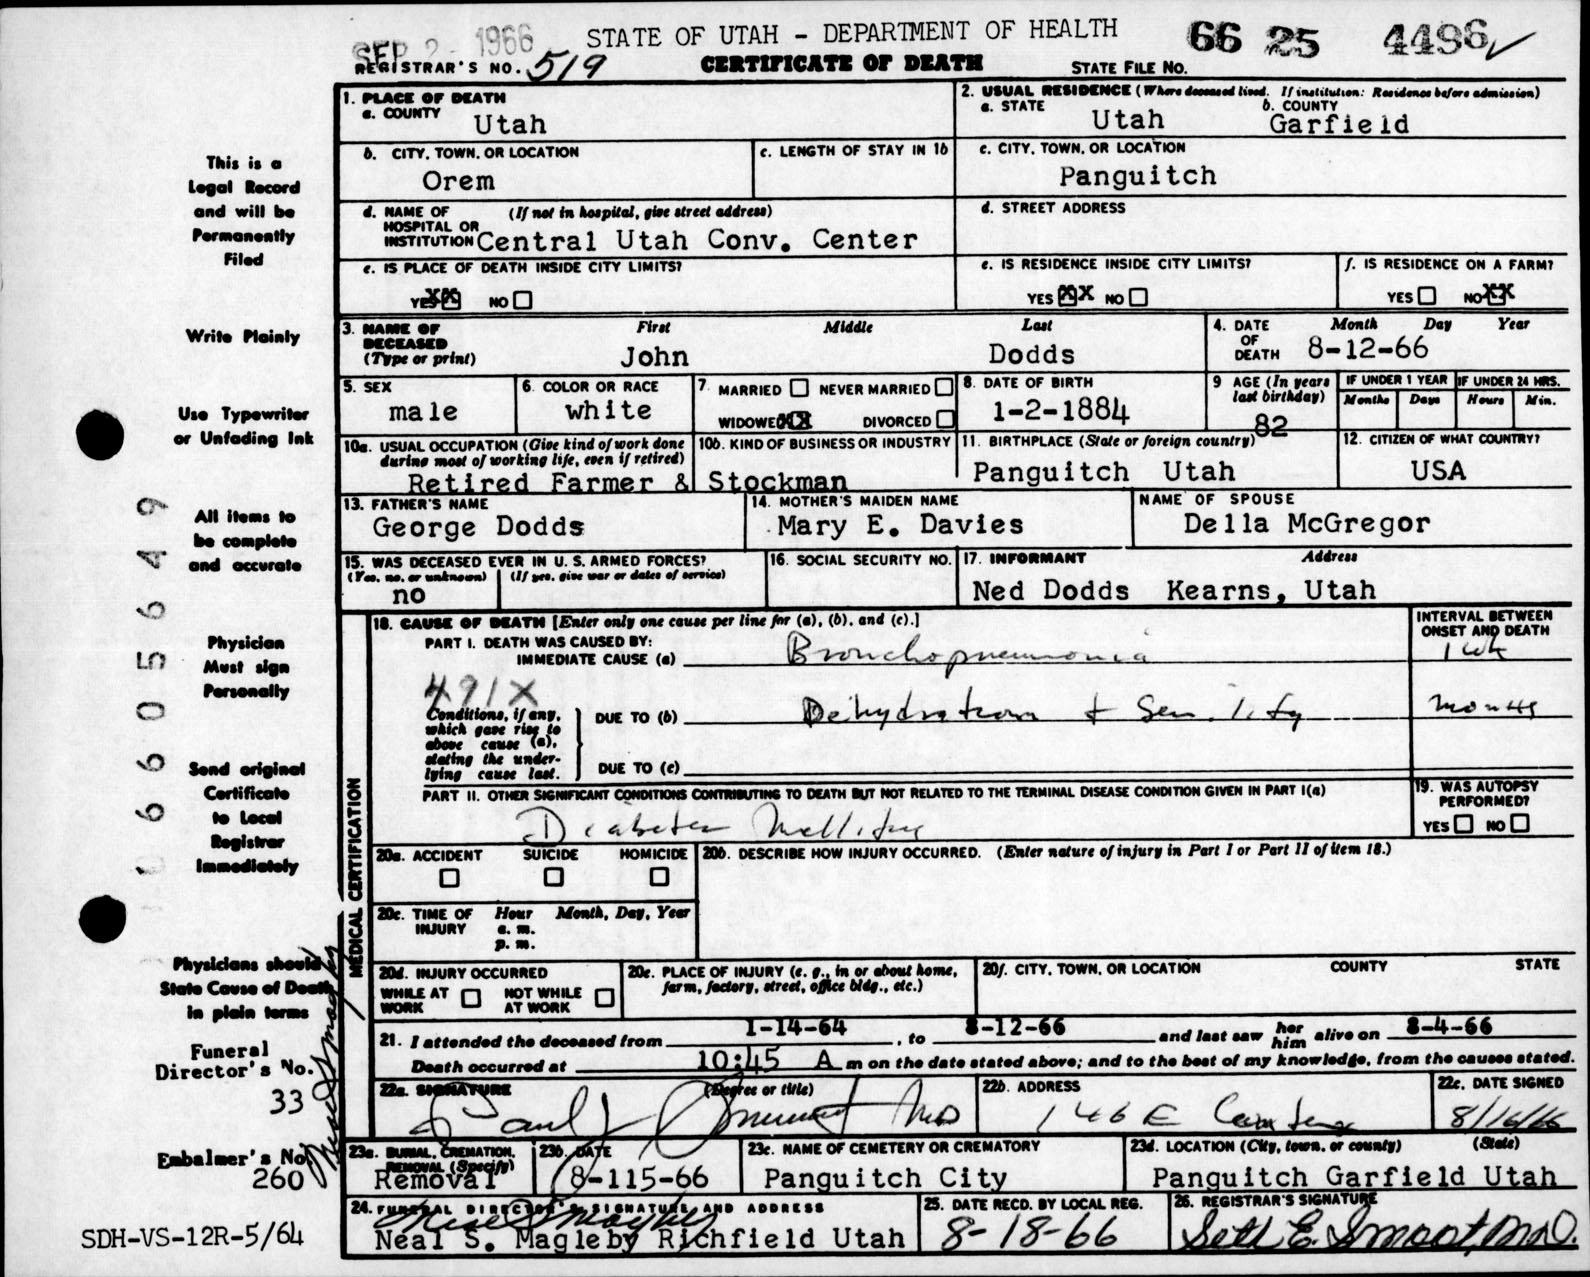 SEP 2 - 1966 STATE OF UTAH - DEPARTMENT OF HEALTH 66 25 4496 ✓
REGISTRAR'S NO. 519 CERTIFICATE OF DEATH STATE FILE NO.
1. PLACE OF DEATH
a. COUNTY Utah
2. USUAL RESIDENCE (Where deceased lived. If institution: Residence before admission)
a. STATE Utah b. COUNTY Garfield
b. CITY, TOWN, OR LOCATION Orem
c. LENGTH OF STAY IN 1b
c. CITY, TOWN, OR LOCATION Panguitch
d. NAME OF HOSPITAL OR INSTITUTION (If not in hospital, give street address) Central Utah Conv. Center
d. STREET ADDRESS
e. IS PLACE OF DEATH INSIDE CITY LIMITS?
YES XX NO
e. IS RESIDENCE INSIDE CITY LIMITS?
YES XX NO
f. IS RESIDENCE ON A FARM?
YES NO XX
3. NAME OF DECEASED (Type or print) First Middle Last
John Dodds
4. DATE OF DEATH Month Day Year
8-12-66
5. SEX male
6. COLOR OR RACE white
7. MARRIED NEVER MARRIED
WIDOWED XX DIVORCED
8. DATE OF BIRTH 1-2-1884
9 AGE (In years last birthday) 82
IF UNDER 1 YEAR Months Days
IF UNDER 24 HRS. Hours Min.
10a. USUAL OCCUPATION (Give kind of work done during most of working life, even if retired)
10b. KIND OF BUSINESS OR INDUSTRY
Retired Farmer & Stockman
11. BIRTHPLACE (State or foreign country) Panguitch Utah
12. CITIZEN OF WHAT COUNTRY? USA
13. FATHER'S NAME George Dodds
14. MOTHER'S MAIDEN NAME Mary E. Davies
NAME OF SPOUSE Della McGregor
15. WAS DECEASED EVER IN U. S. ARMED FORCES?
(Yes, no, or unknown) (If yes, give war or dates of service)
no
16. SOCIAL SECURITY NO.
17. INFORMANT Address
Ned Dodds Kearns, Utah
MEDICAL CERTIFICATION
18. CAUSE OF DEATH [Enter only one cause per line for (a), (b), and (c).]
INTERVAL BETWEEN ONSET AND DEATH
PART I. DEATH WAS CAUSED BY:
IMMEDIATE CAUSE (a) Bronchopneumonia 1 wk
491X
Conditions, if any, which gave rise to above cause (a), stating the underlying cause last.
DUE TO (b) Dehydration + Senility months
DUE TO (c)
PART II. OTHER SIGNIFICANT CONDITIONS CONTRIBUTING TO DEATH BUT NOT RELATED TO THE TERMINAL DISEASE CONDITION GIVEN IN PART I(a)
Diabetes Mellitus
19. WAS AUTOPSY PERFORMED?
YES NO
20a. ACCIDENT SUICIDE HOMICIDE
20b. DESCRIBE HOW INJURY OCCURRED. (Enter nature of injury in Part I or Part II of item 18.)
20c. TIME OF INJURY Hour Month, Day, Year
a. m.
p. m.
20d. INJURY OCCURRED
WHILE AT WORK NOT WHILE AT WORK
20e. PLACE OF INJURY (e. g., in or about home, farm, factory, street, office bldg., etc.)
20f. CITY, TOWN, OR LOCATION COUNTY STATE
21. I attended the deceased from 1-14-64, to 8-12-66 and last saw her him alive on 8-4-66
Death occurred at 10:45 A m on the date stated above; and to the best of my knowledge, from the causes stated.
22a. SIGNATURE (Degree or title) Paul J MD
22b. ADDRESS 146 E
22c. DATE SIGNED 8/16/66
23a. BURIAL, CREMATION, REMOVAL (Specify) Removal
23b. DATE 8-115-66
23c. NAME OF CEMETERY OR CREMATORY Panguitch City
23d. LOCATION (City, town, or county) (State)
Panguitch Garfield Utah
24. FUNERAL DIRECTOR'S SIGNATURE AND ADDRESS
Neal S. Magleby Richfield Utah
25. DATE RECD. BY LOCAL REG. 8-18-66
26. REGISTRAR'S SIGNATURE Seth E. Smoot, M.D.
This is a
Legal Record
and will be
Permanently
Filed
Write Plainly
Use Typewriter
or Unfading Ink
All items to
be complete
and accurate
Physician
Must sign
Personally
Send original
Certificate
to Local
Registrar
Immediately
Physicians should
State Cause of Death
in plain terms
Funeral
Director's No.
33
Embalmer's No
260
SDH-VS-12R-5/64
66 05649